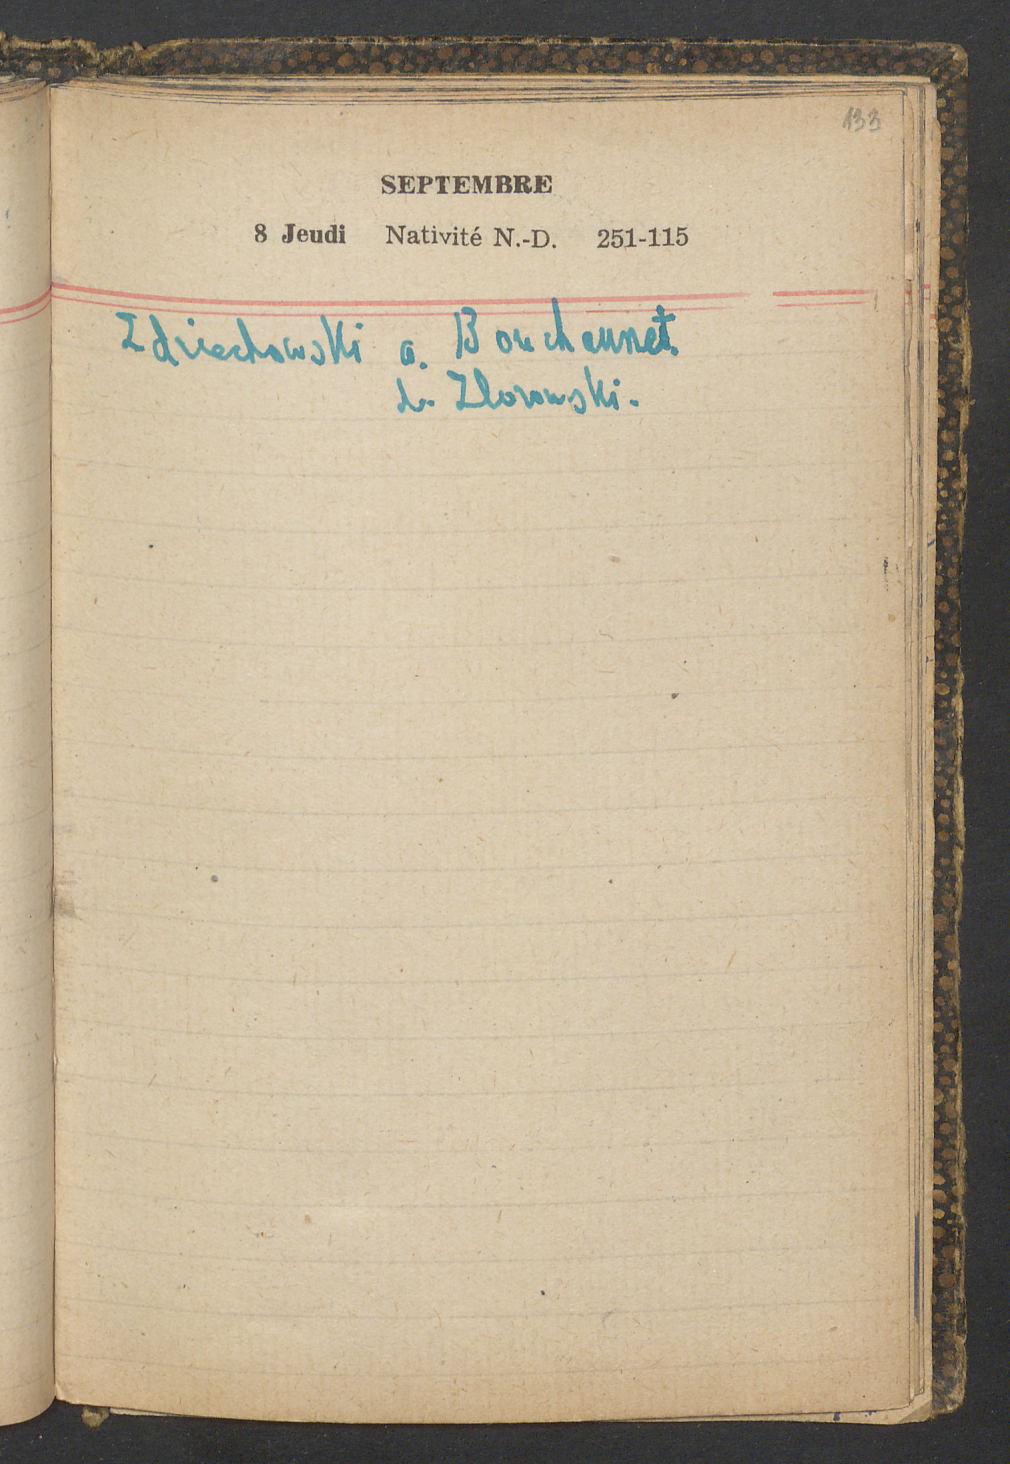 133
SEPTEMBRE
8 Jeudi Nativité N.-D. 251-115
Zdziechowski a. Boucheunet.
b. Zborowski.